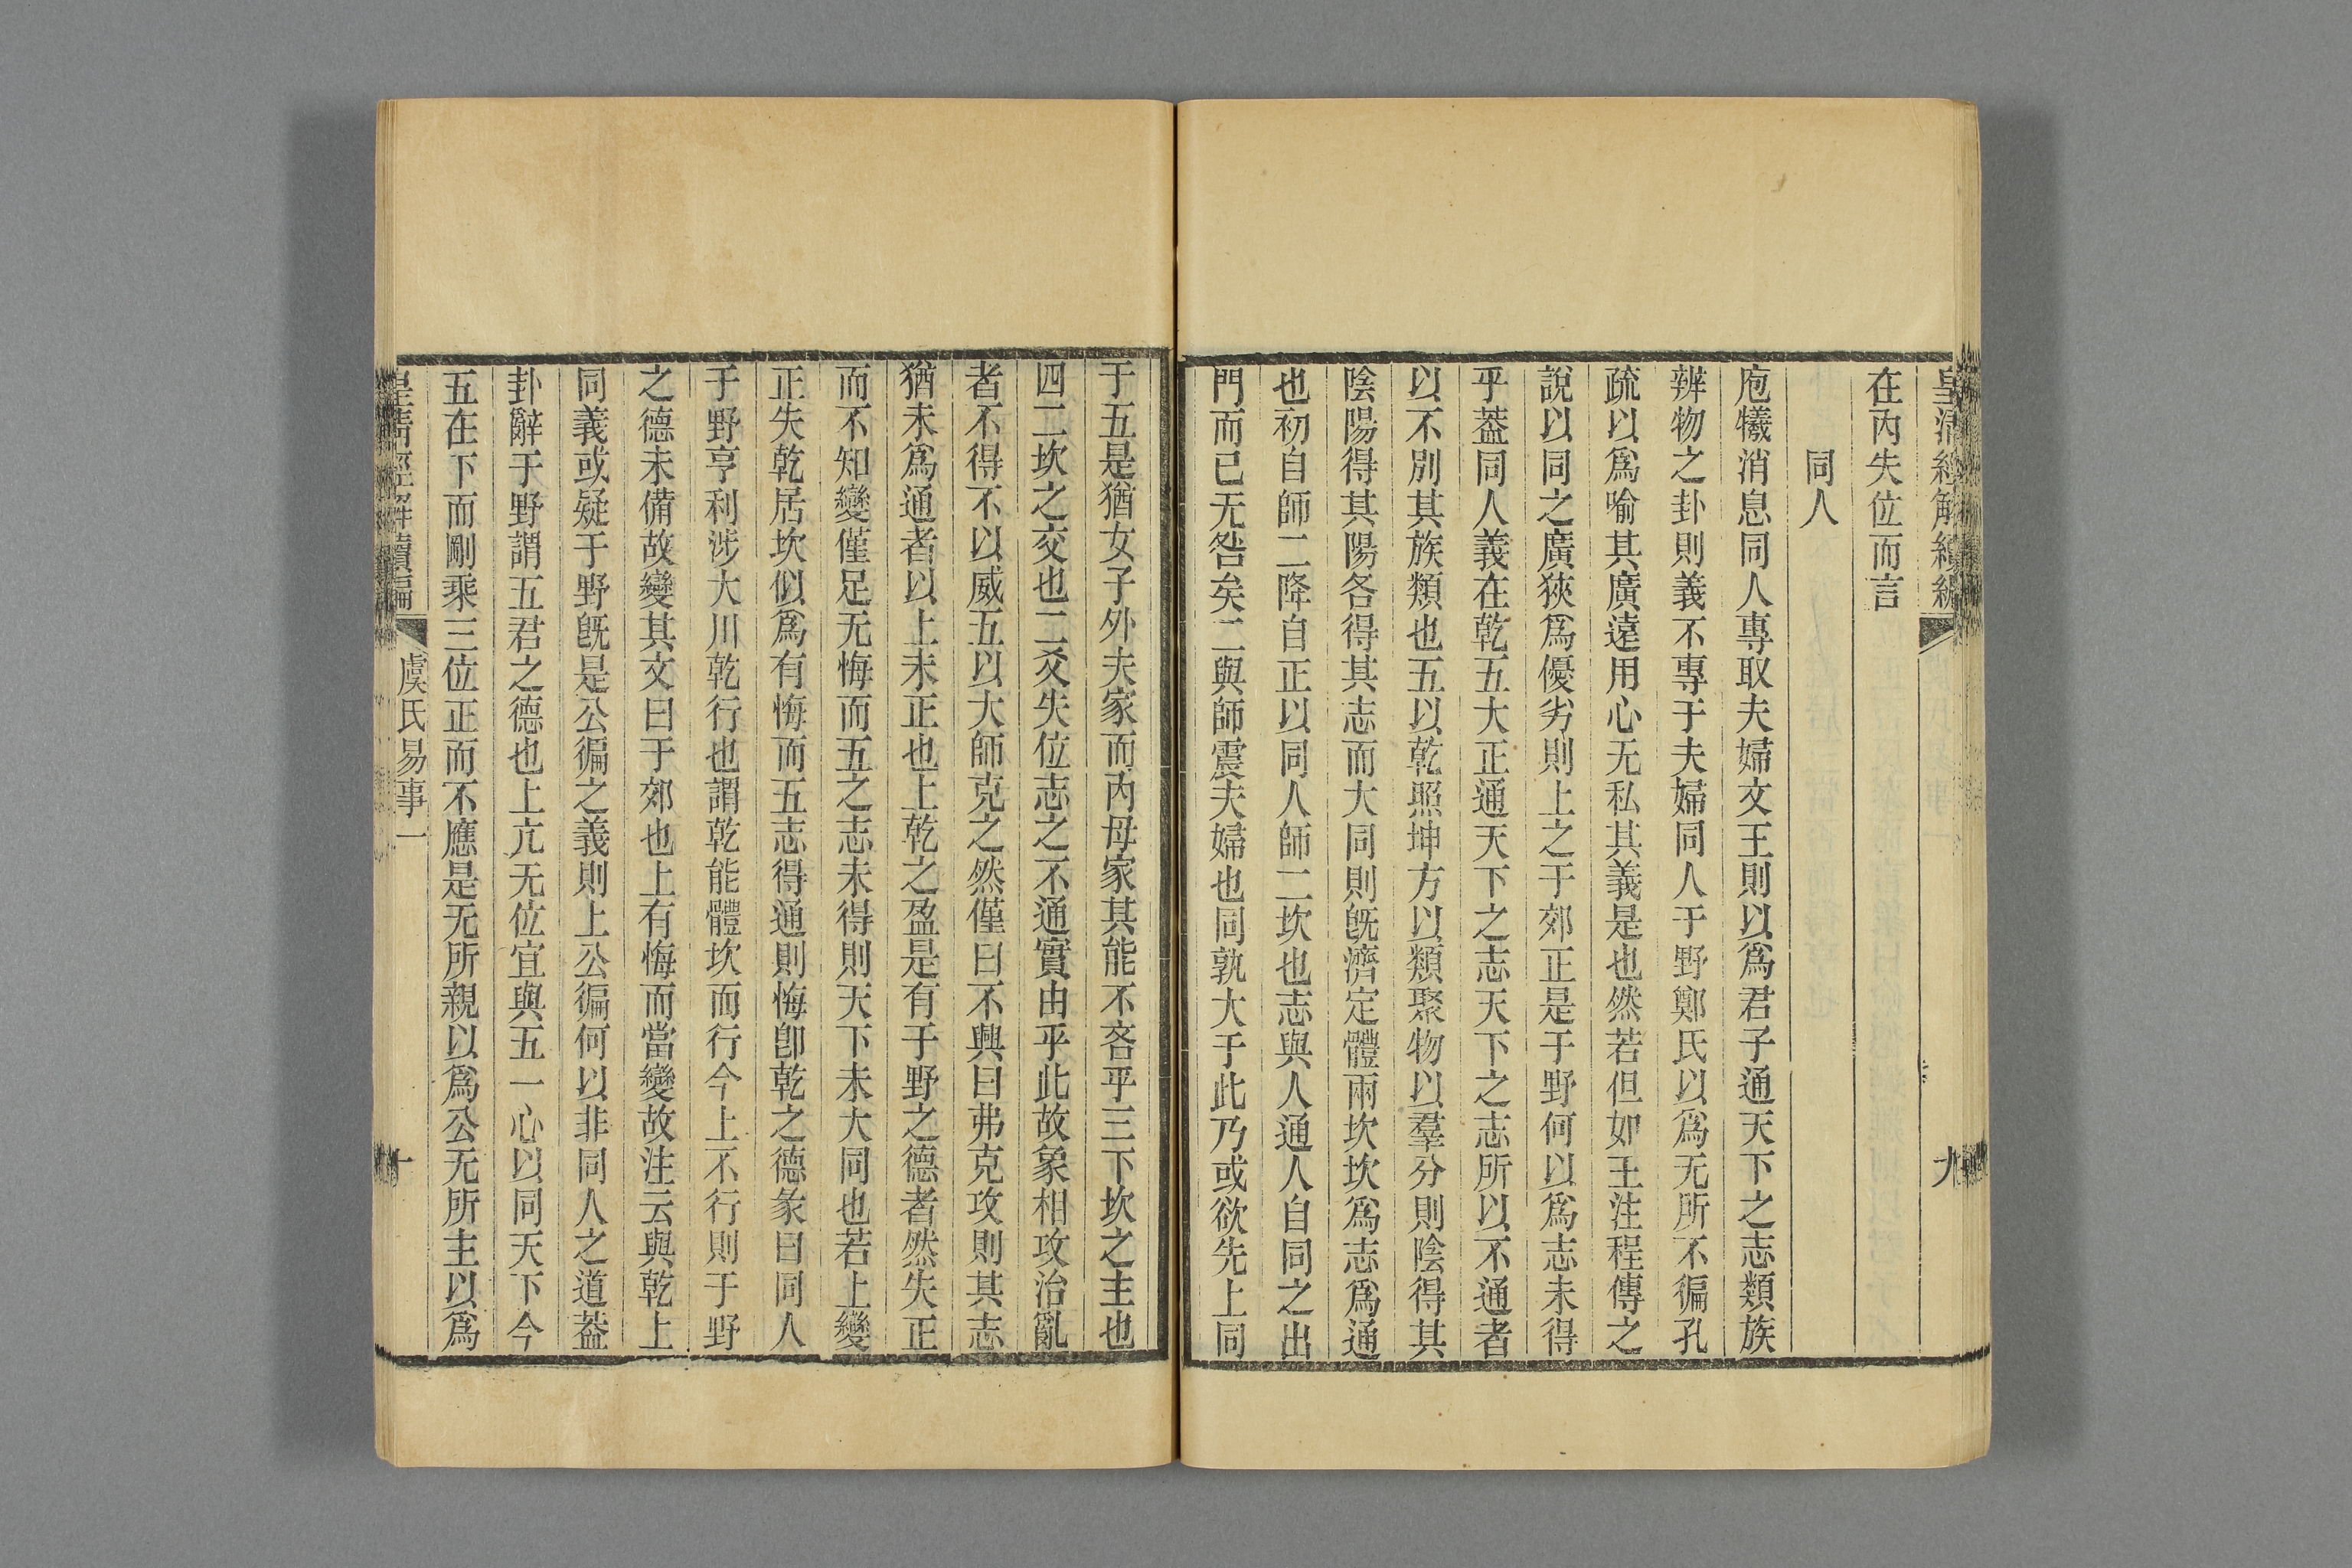 皇清經解續編
九
在內失位而言
同人
庖犧消息同人專取夫婦文王則以爲君子通天下之志類族
辨物之卦則義不專于夫婦同人于野鄭氏以爲无所不徧孔
疏以爲喻其廣遠用心无私其義是也然若但如王注程傳之
說以同之廣狹爲優劣則上之于郊正是于野何以爲志未得
乎葢同人義在乾五大正通天下之志天下之志所以不通者
以不別其族類也五以乾照坤方以類聚物以羣分則陰得其
陰陽得其陽各得其志而大同則旣濟定體兩坎坎爲志爲通
也初自師二降自正以同人師二坎也志與人通人自同之出
門而已无咎矣二與師震夫婦也同孰大于此乃或欲先上同
于五是猶女子外夫家而內母家其能不吝乎三下坎之主也
四二坎之交也二爻失位志之不通實由乎此故象相攻治亂
者不得不以威五以大師克之然僅曰不興曰弗克攻則其志
猶未爲通者以上未正也上乾之盈是有于野之德者然失正
而不知變僅足无悔而五之志未得則天下未大同也若上變
正失乾居坎似爲有悔而五志得通則悔卽乾之德彖曰同人
于野亨利涉大川乾行也謂乾能體坎而行今上不行則于野
之德未備故變其文曰于郊也上有悔而當變故注云與乾上
同義或疑于野旣是公徧之義則上公徧何以非同人之道葢
卦辭于野謂五君之德也上亢无位宜與五一心以同天下今
五在下而剛乘三位正而不應是无所親以爲公无所主以爲
皇清經解續編
虞氏易事一
十